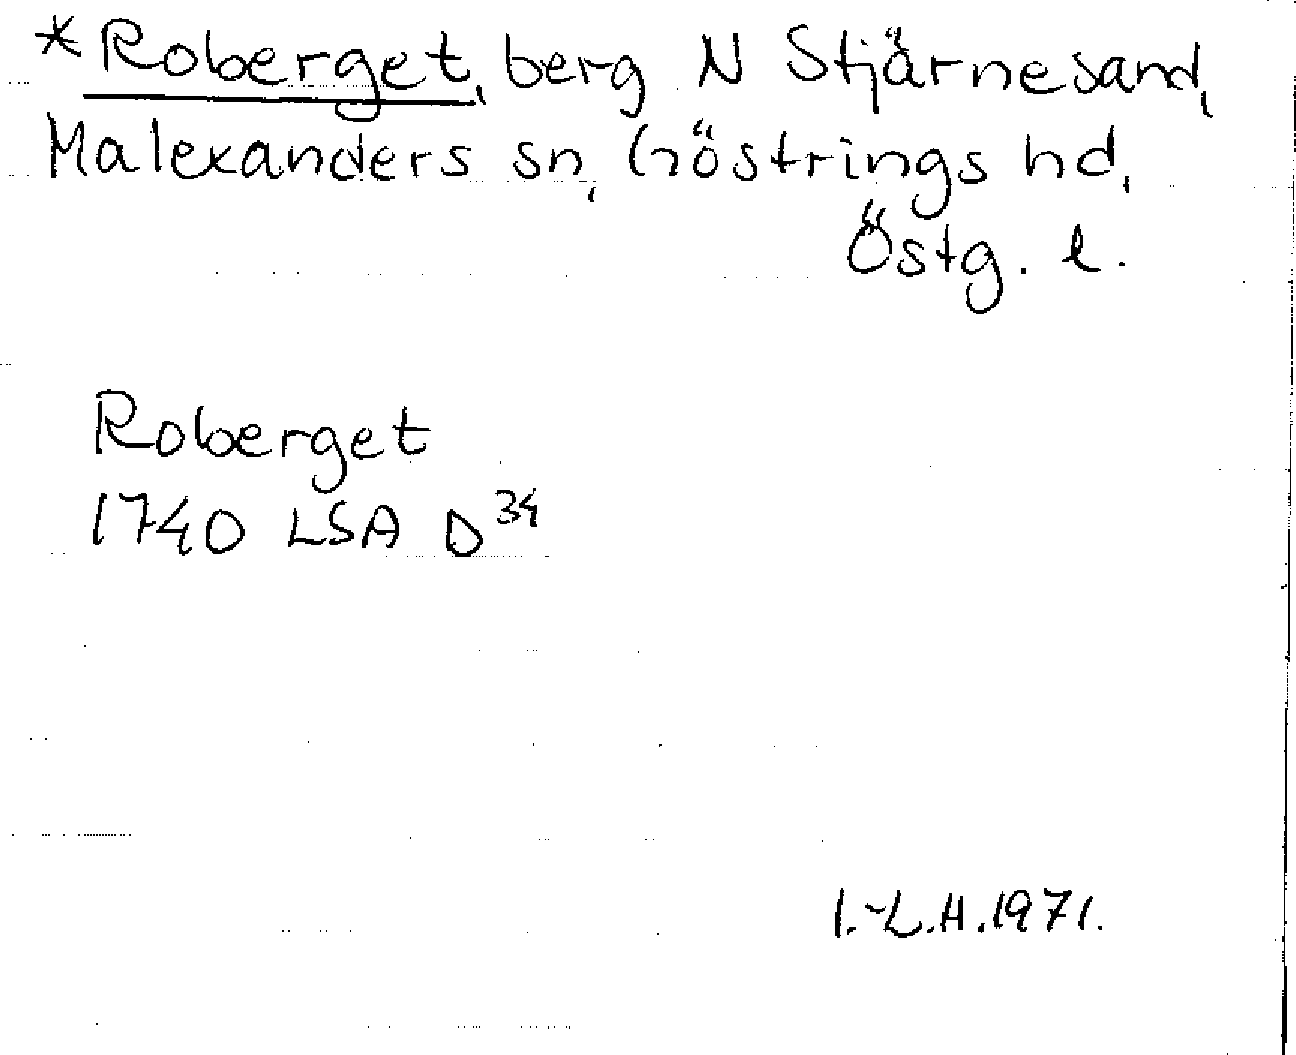 *Roberget, berg N Stjärnesand,
Malexanders sn, Göstrings hd,
Östg. l.
Roberget
1740 LSA D³⁴
I.-L.H.1971.